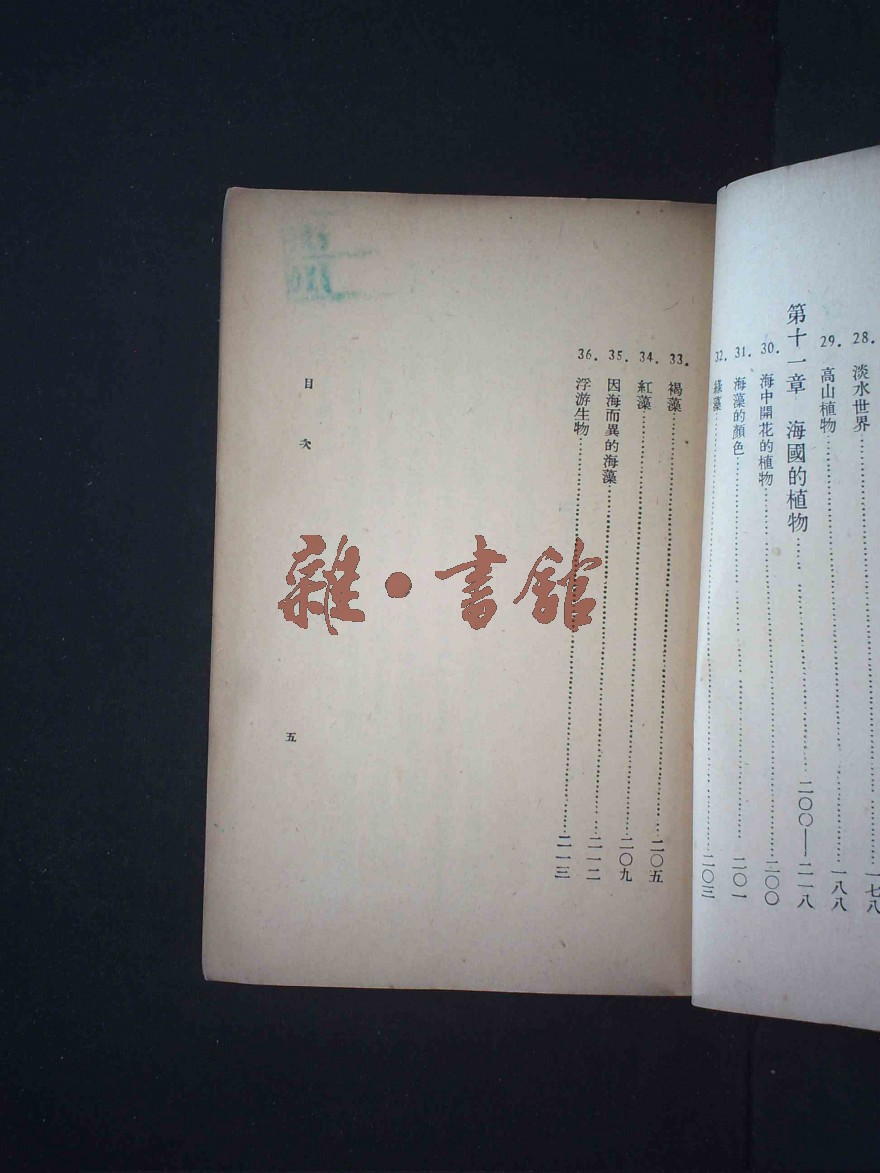 28. 淡水世界……一七八
29. 高山植物……一八八
第十一章 海國的植物……二〇〇——二一八
30. 海中開花的植物……二〇〇
31. 海藻的顏色……二〇一
32. 綠藻……二〇三
33. 褐藻……二〇五
34. 紅藻……二〇九
35. 因海而異的海藻……二一二
36. 浮游生物……二一三
目次
五
雜·書館